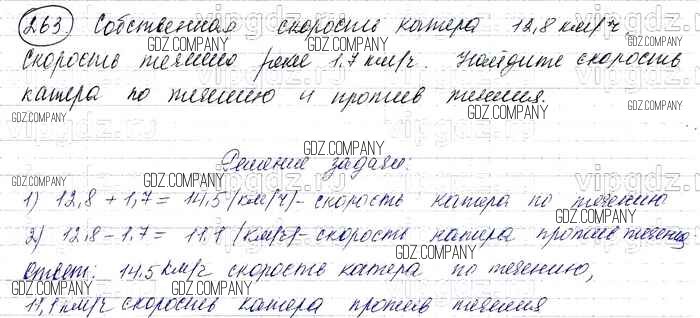 263. Собственная скорость катера 12,8 км/ч,
скорость течению реке 1,7 км/ч. Найдите скорость
катера по течению и против течения.
Решение задачи:
1) 12,8 + 1,7 = 14,5 (км/ч) - скорость катера по течению
2) 12,8 - 1,7 = 11,1 (км/ч) - скорость катера против течения
Ответ: 14,5 км/ч скорость катера по течению,
11,1 км/ч скорость катера против течения
GDZ.COMPANY
GDZ.COMPANY
GDZ.COMPANY
GDZ.COMPANY
GDZ.COMPANY
GDZ.COMPANY
GDZ.COMPANY
GDZ.COMPANY
GDZ.COMPANY
GDZ.COMPANY
GDZ.COMPANY
vipgdz.ru
vipgdz.ru